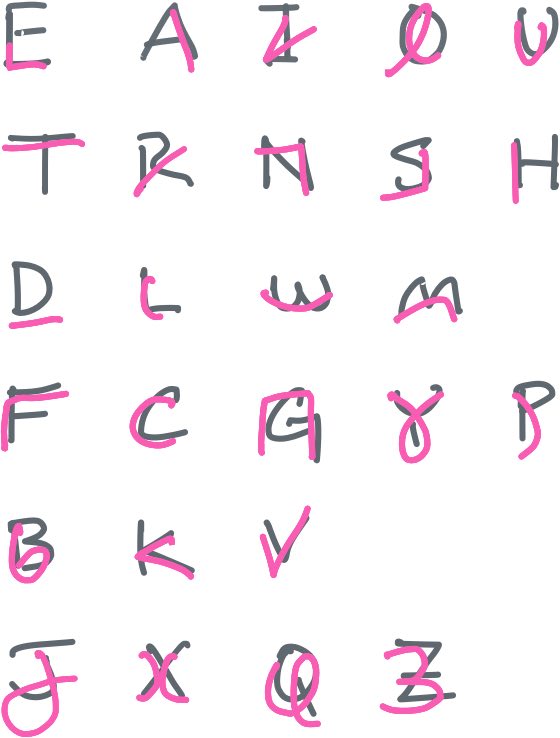 E A I O U
T R N S H
D L W M
F C G Y P
B K V
J X Q Z